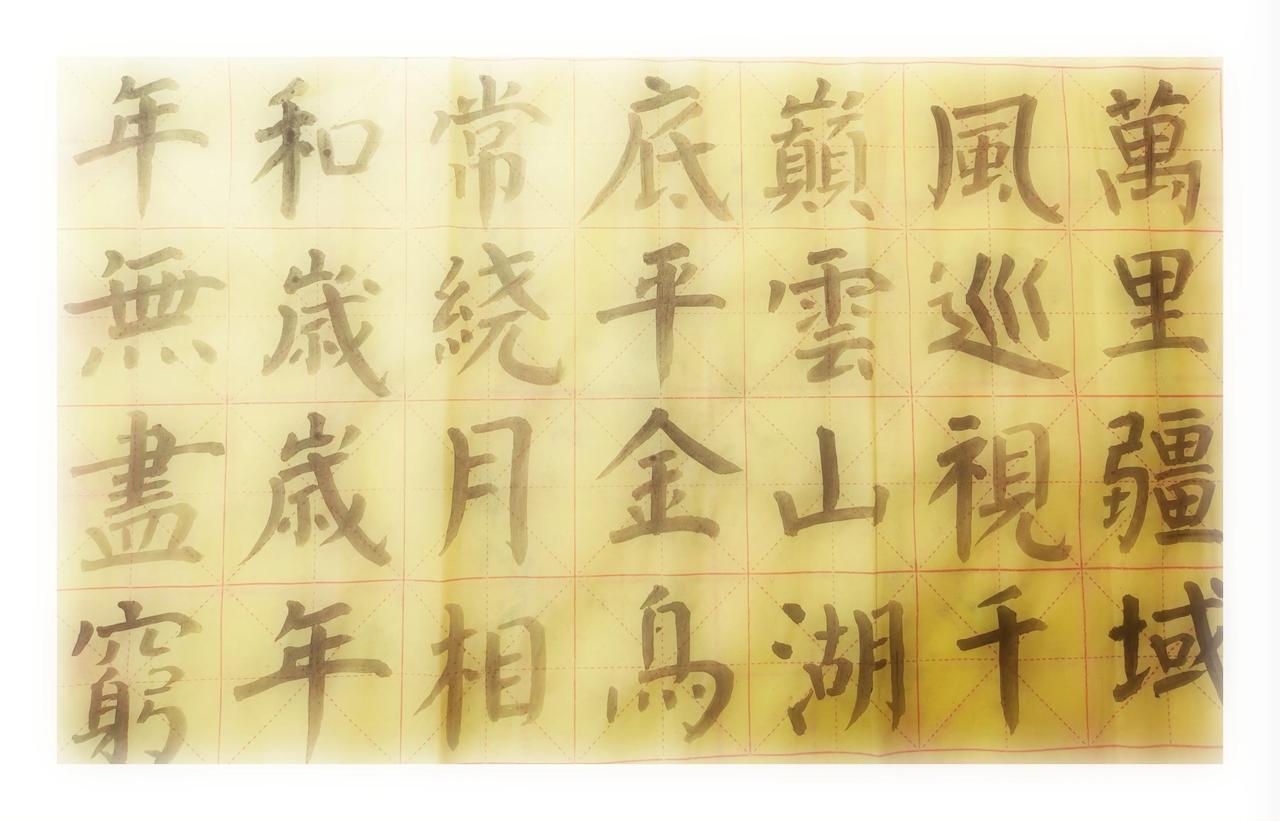 萬里疆域
風巡視千
巔雲山湖
底平金烏
常繞月相
和嵗嵗年
年無盡窮